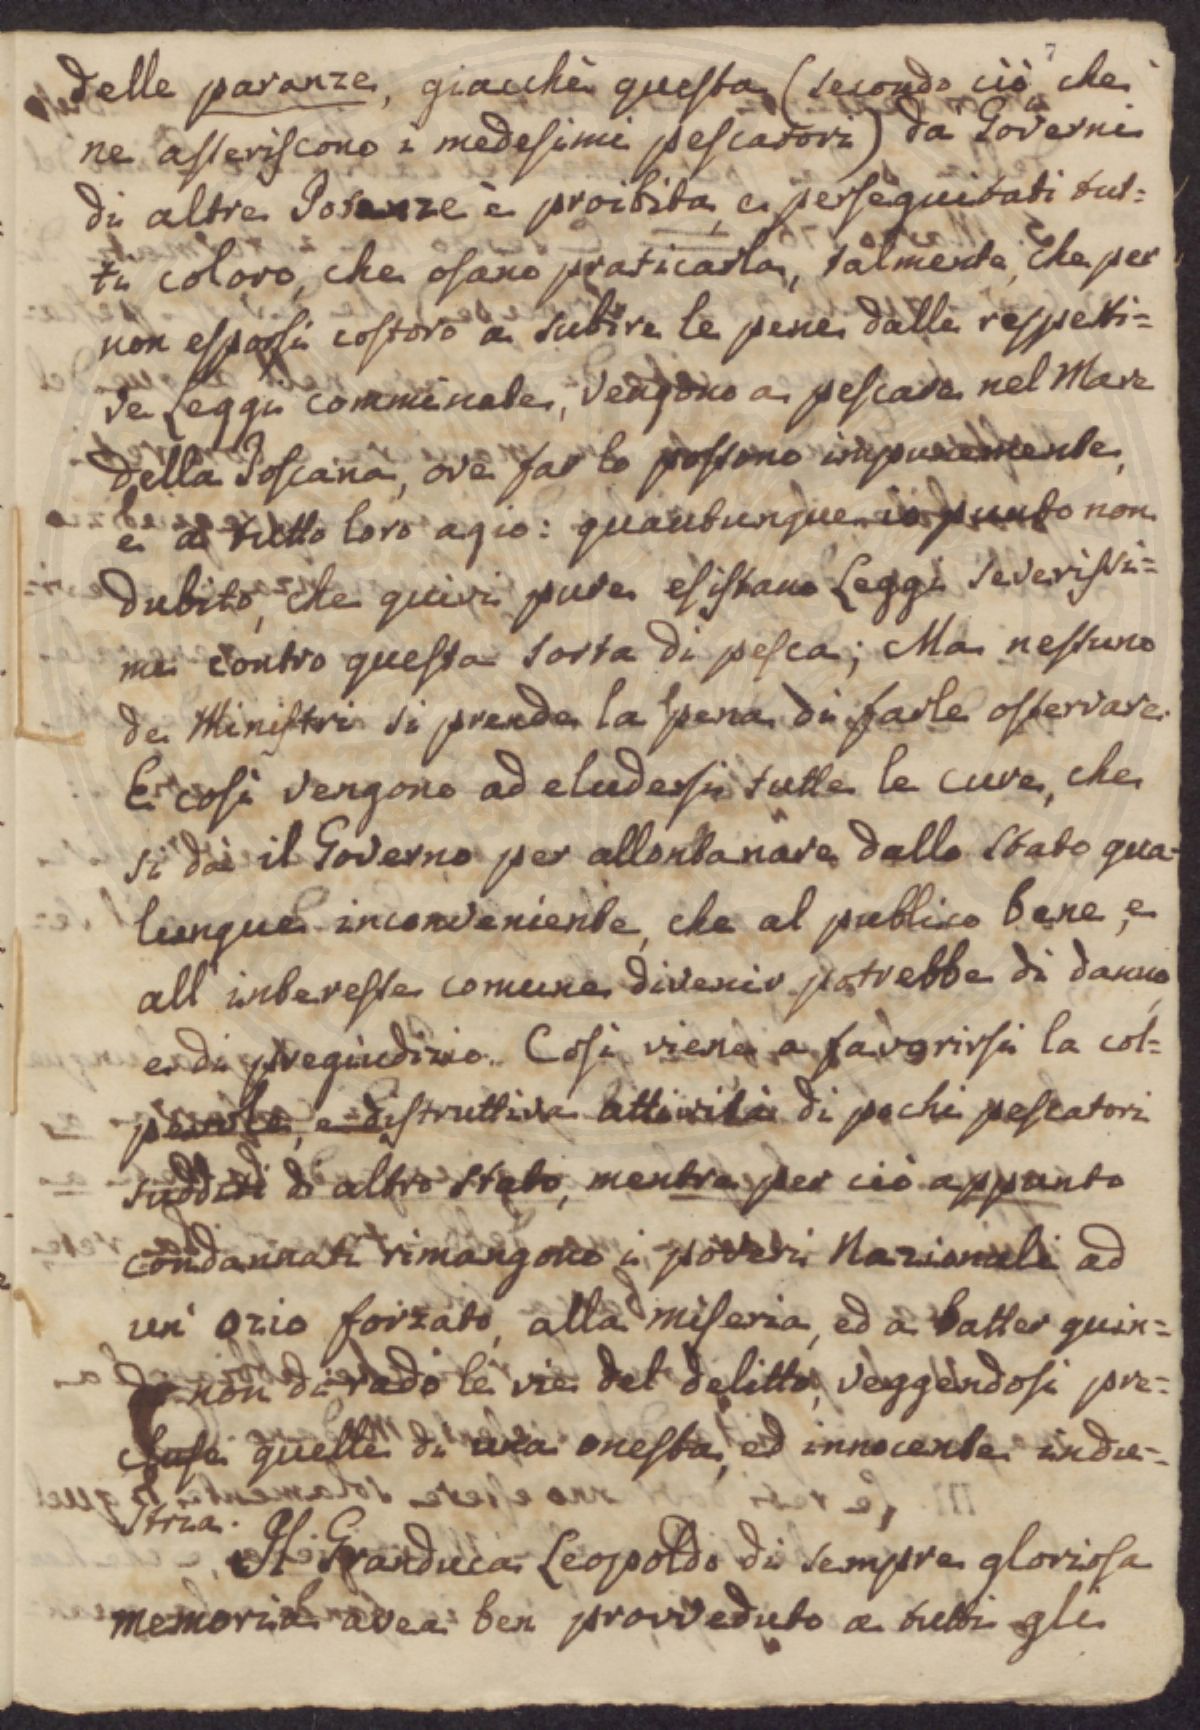 7
delle paranze, giacchè questa (secondo ciò che
ne asseriscono i medesimi pescatori) da Governi
di altre Potenze è proibita, e perseguitati tut=
ti coloro, che osano praticarla, talmente, che per
non esporsi costoro a subire le pene dalle respetti=
ve Leggi comminate, vengono a pescare nel Mare
della Toscana, ove far lo possono impunemente,
e a tutto loro agio: quantunque io punto non
dubito, che quivi pure esistano Leggi severissi=
me contro questa sorta di pesca; Ma nessuno
de Ministri si prende la pena di farle osservare.
E così vengono ad eludersi tutte le cure, che
si dà il Governo per allontanare dallo Stato qua=
lunque inconveniente, che al publico bene, e
all' interesse comune divenir potrebbe di danno,
e di pregiudizio. Così viene a favorirsi la col=
pevole, e distruttiva attività di pochi pescatori
sudditi di altro Stato, mentre per ciò appunto
condannati rimangono i poveri Nazionali ad
un' ozio forzato, alla miseria, ed a batter quin=
di non di rado le vie del delitto, veggendosi pre=
cluse quelle di una onesta, ed innocente indu=
stria.
Il Granduca Leopoldo di sempre gloriosa
memoria avea ben provveduto a tutti gli